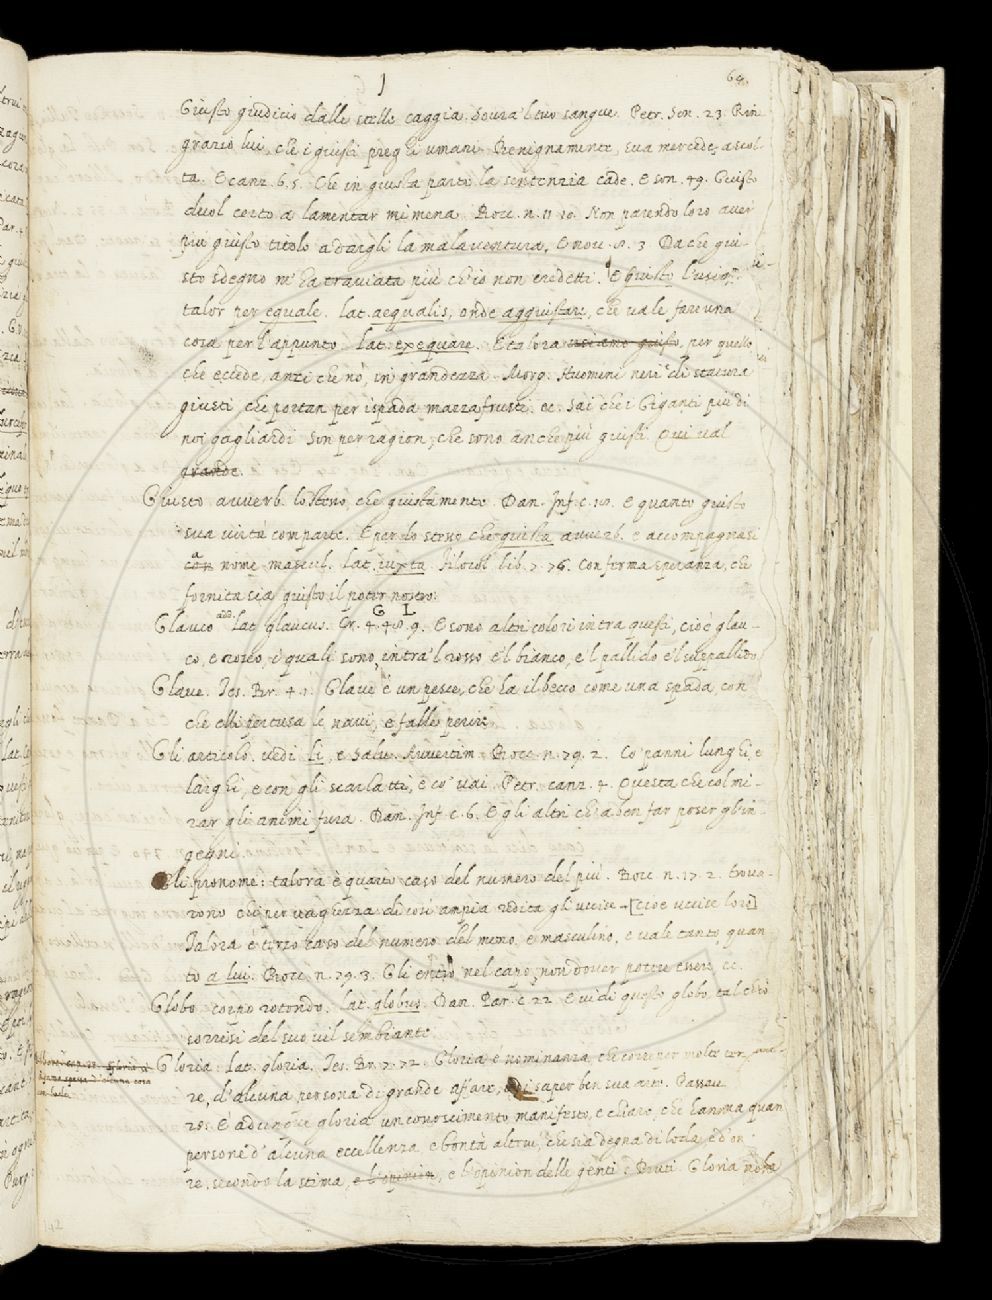 I
69
Giusto giudicio dalle stelle caggia Soura 'l tuo sangue. Petr. Son. 23. Rin
grazio lui, che i giusti preghi umani Benignamente, sua mercede, ascol
ta. E canz. 6. 5. Che in giusta parte la sentenzia cade. E son. 49. Giusto
duol certo a lamentar mi mena. Bocc. n. 11 10. Non parendo loro aver
piu giusto titolo a dargli la mala ventura. E nov. 8. 3. Da che giu-
sto sdegno m' ha traviata più ch' io non credetti. E giusto l' usiã
talor per eguale. Lat. aequalis, onde aggiustare, che vale, fare una
cosa per l' appunto. Lat. exequare. E talora usiamo giusto, per quello
che eccede, anzi che nò, in grandezza. Morg. Huomini neri di statura
giusti, che portan per ispada mazzafrusti. ec. Sai che i Giganti più di
noi gagliardi Son per ragion, che sono anche più giusti. Qui val
grande.
Giusto avverb. lo stesso, che giustamente. Dan. Inf. c. 10. E quanto giusto
sua virtù comparte. E per lo stesso che giusta avverb. e accompagnasi
a
con nome mascul. Lat. iuxta. Filocol lib. 7. 76. Con ferma speranza, che
fornita sia giusto il poter nostro.
G L
Glauco add. Lat. glaucus. Cr. 4. 48. 9. E sono altri colori intra questi, cioè glau-
co, e roseo, i quali sono intra 'l rosso e 'l bianco, e 'l pallido e 'l suppallido
Glave. Tes. Br. 4. 1. Glave è un pesce, che ha il becco come una spada, con
che elli pertusa le navi, e falle perire.
Gli articolo. vedi Li, e Salv. Avvertim. Bocc. n. 79. 2. Co' panni lunghi, e
larghi, e con gli scarlatti, e co' vai. Petr. canz. 4. Questa che col mi-
rar gli animi fura. Dan. Inf. c. 6. E gli altri ch' a ben far poser gl' in-
gegni.
Gli pronome: talora è quarto caso del numero del più. Bocc. n. 17. 2. trova-
rono chi per vaghezza di così ampia redita gli uccise [cioè uccise loro]
Talora è terzo caso del numero del meno, e masculino, e vale tanto, quan-
to a lui. Bocc. n. 79. 3. Gli entrò nel capo, non dover potere essere, ec.
Globo. corpo rotondo. Lat. globus. Dan. Par. c. 22. E vidi questo globo tal ch' io
sorrisi del suo vil sembiante
Gloria. Lat. gloria. Tes. Br. 7. 72. Gloria è nominanza, che corre per molte ter-
re, d' alcuna persona di grande affare, di saper ben sua arte. Passav.
È adunque gloria un conoscimento manifesto, e chiaro, che hanno quan
persone d' alcuna eccellenza, e bontà altrui, che sia degna di loda, ed on-
re, secondo la stima, e l' opinion, e l' openion delle genti. Gloria
142